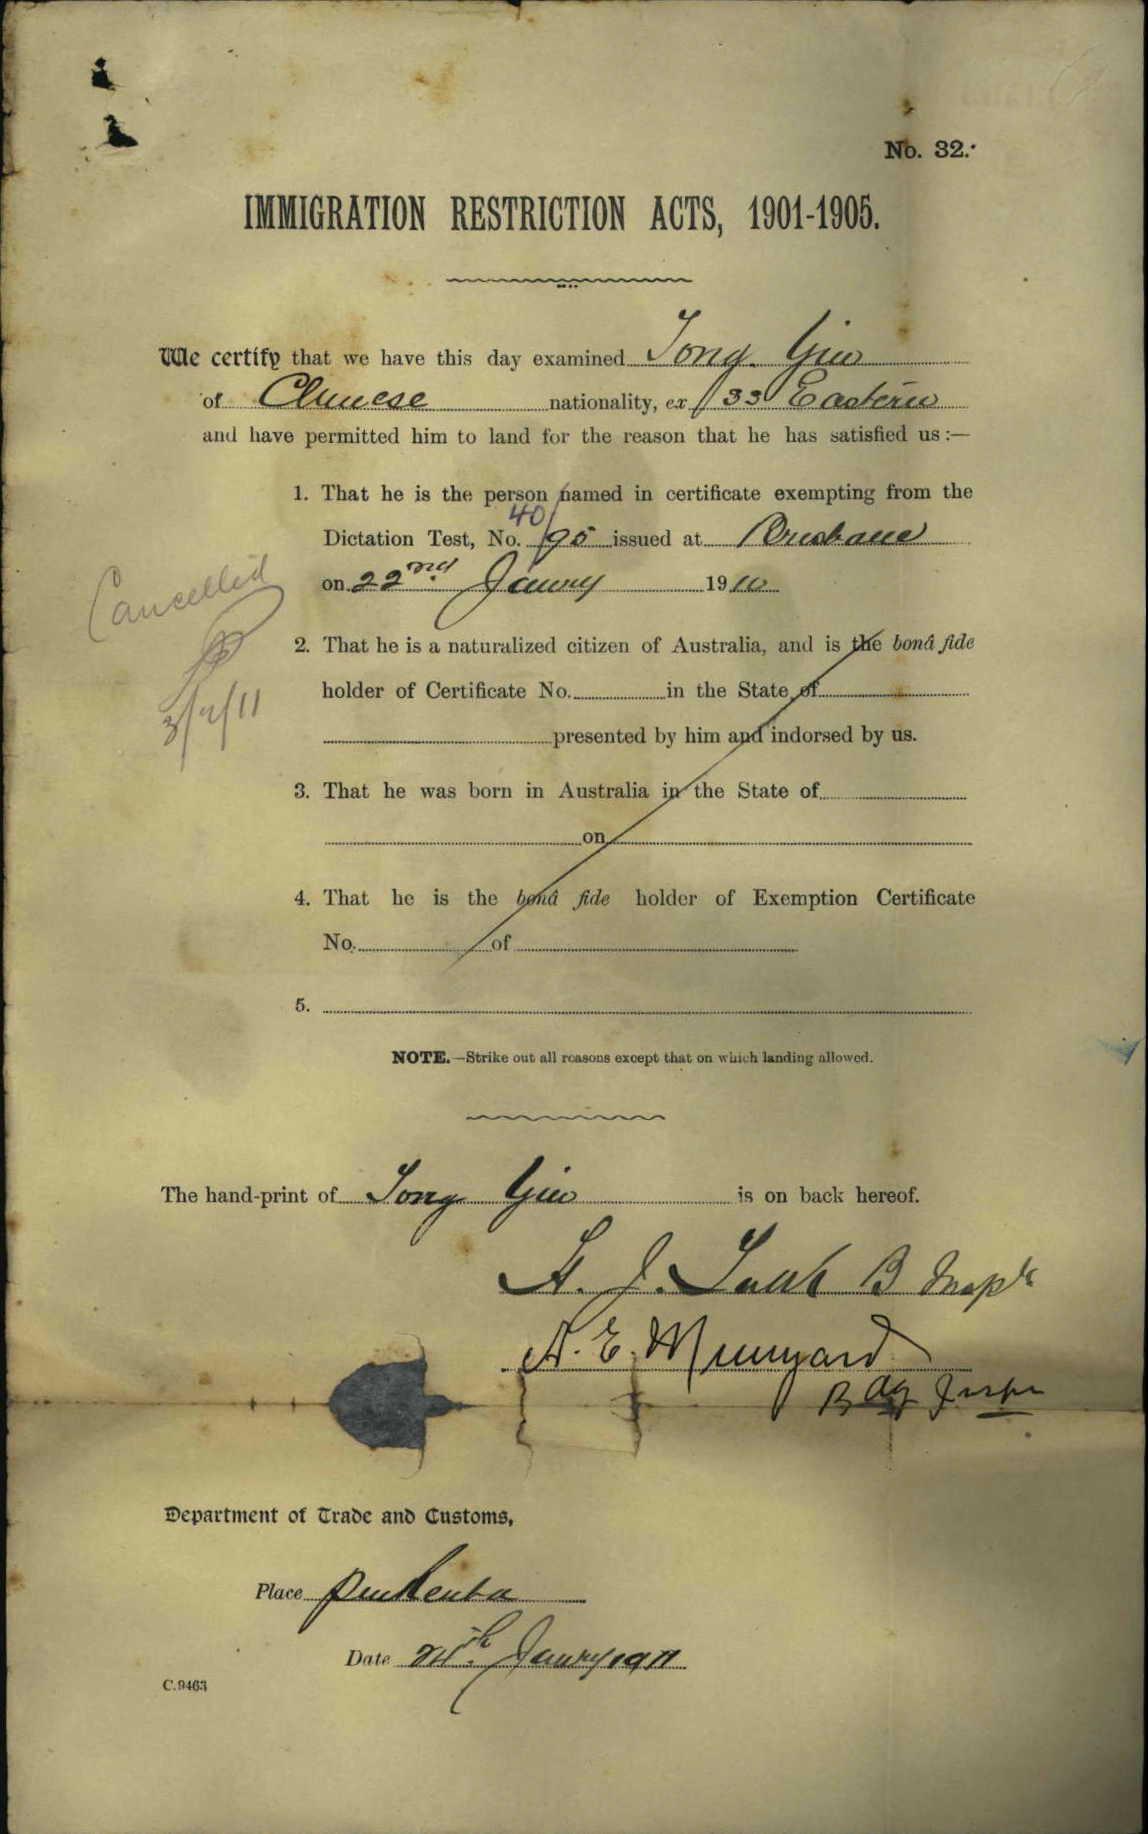 No. 32.
IMMIGRATION RESTRICTION ACTS, 1901-1905.
We certify that we have this day examined Tong Giw
of Chinese nationality, ex 33 Eastern
and have permitted him to land for the reason that he has satisfied us :—
1. That he is the person named in certificate exempting from the
40/
Dictation Test, No. 95 issued at Brisbane
on 22nd Janury 1910
Cancelled
2. That he is a naturalized citizen of Australia, and is the bonâ fide
holder of Certificate No. in the State of
3/7/11
presented by him and indorsed by us.
3. That he was born in Australia in the State of
on
4. That he is the bonâ fide holder of Exemption Certificate
No. of
5.
NOTE.—Strike out all reasons except that on which landing allowed.
The hand-print of Tong Giw is on back hereof.
J. B
A. E. Munyard
B
Department of Trade and Customs,
Place Pinkenba
Date 24th Janury 1911
C.9463